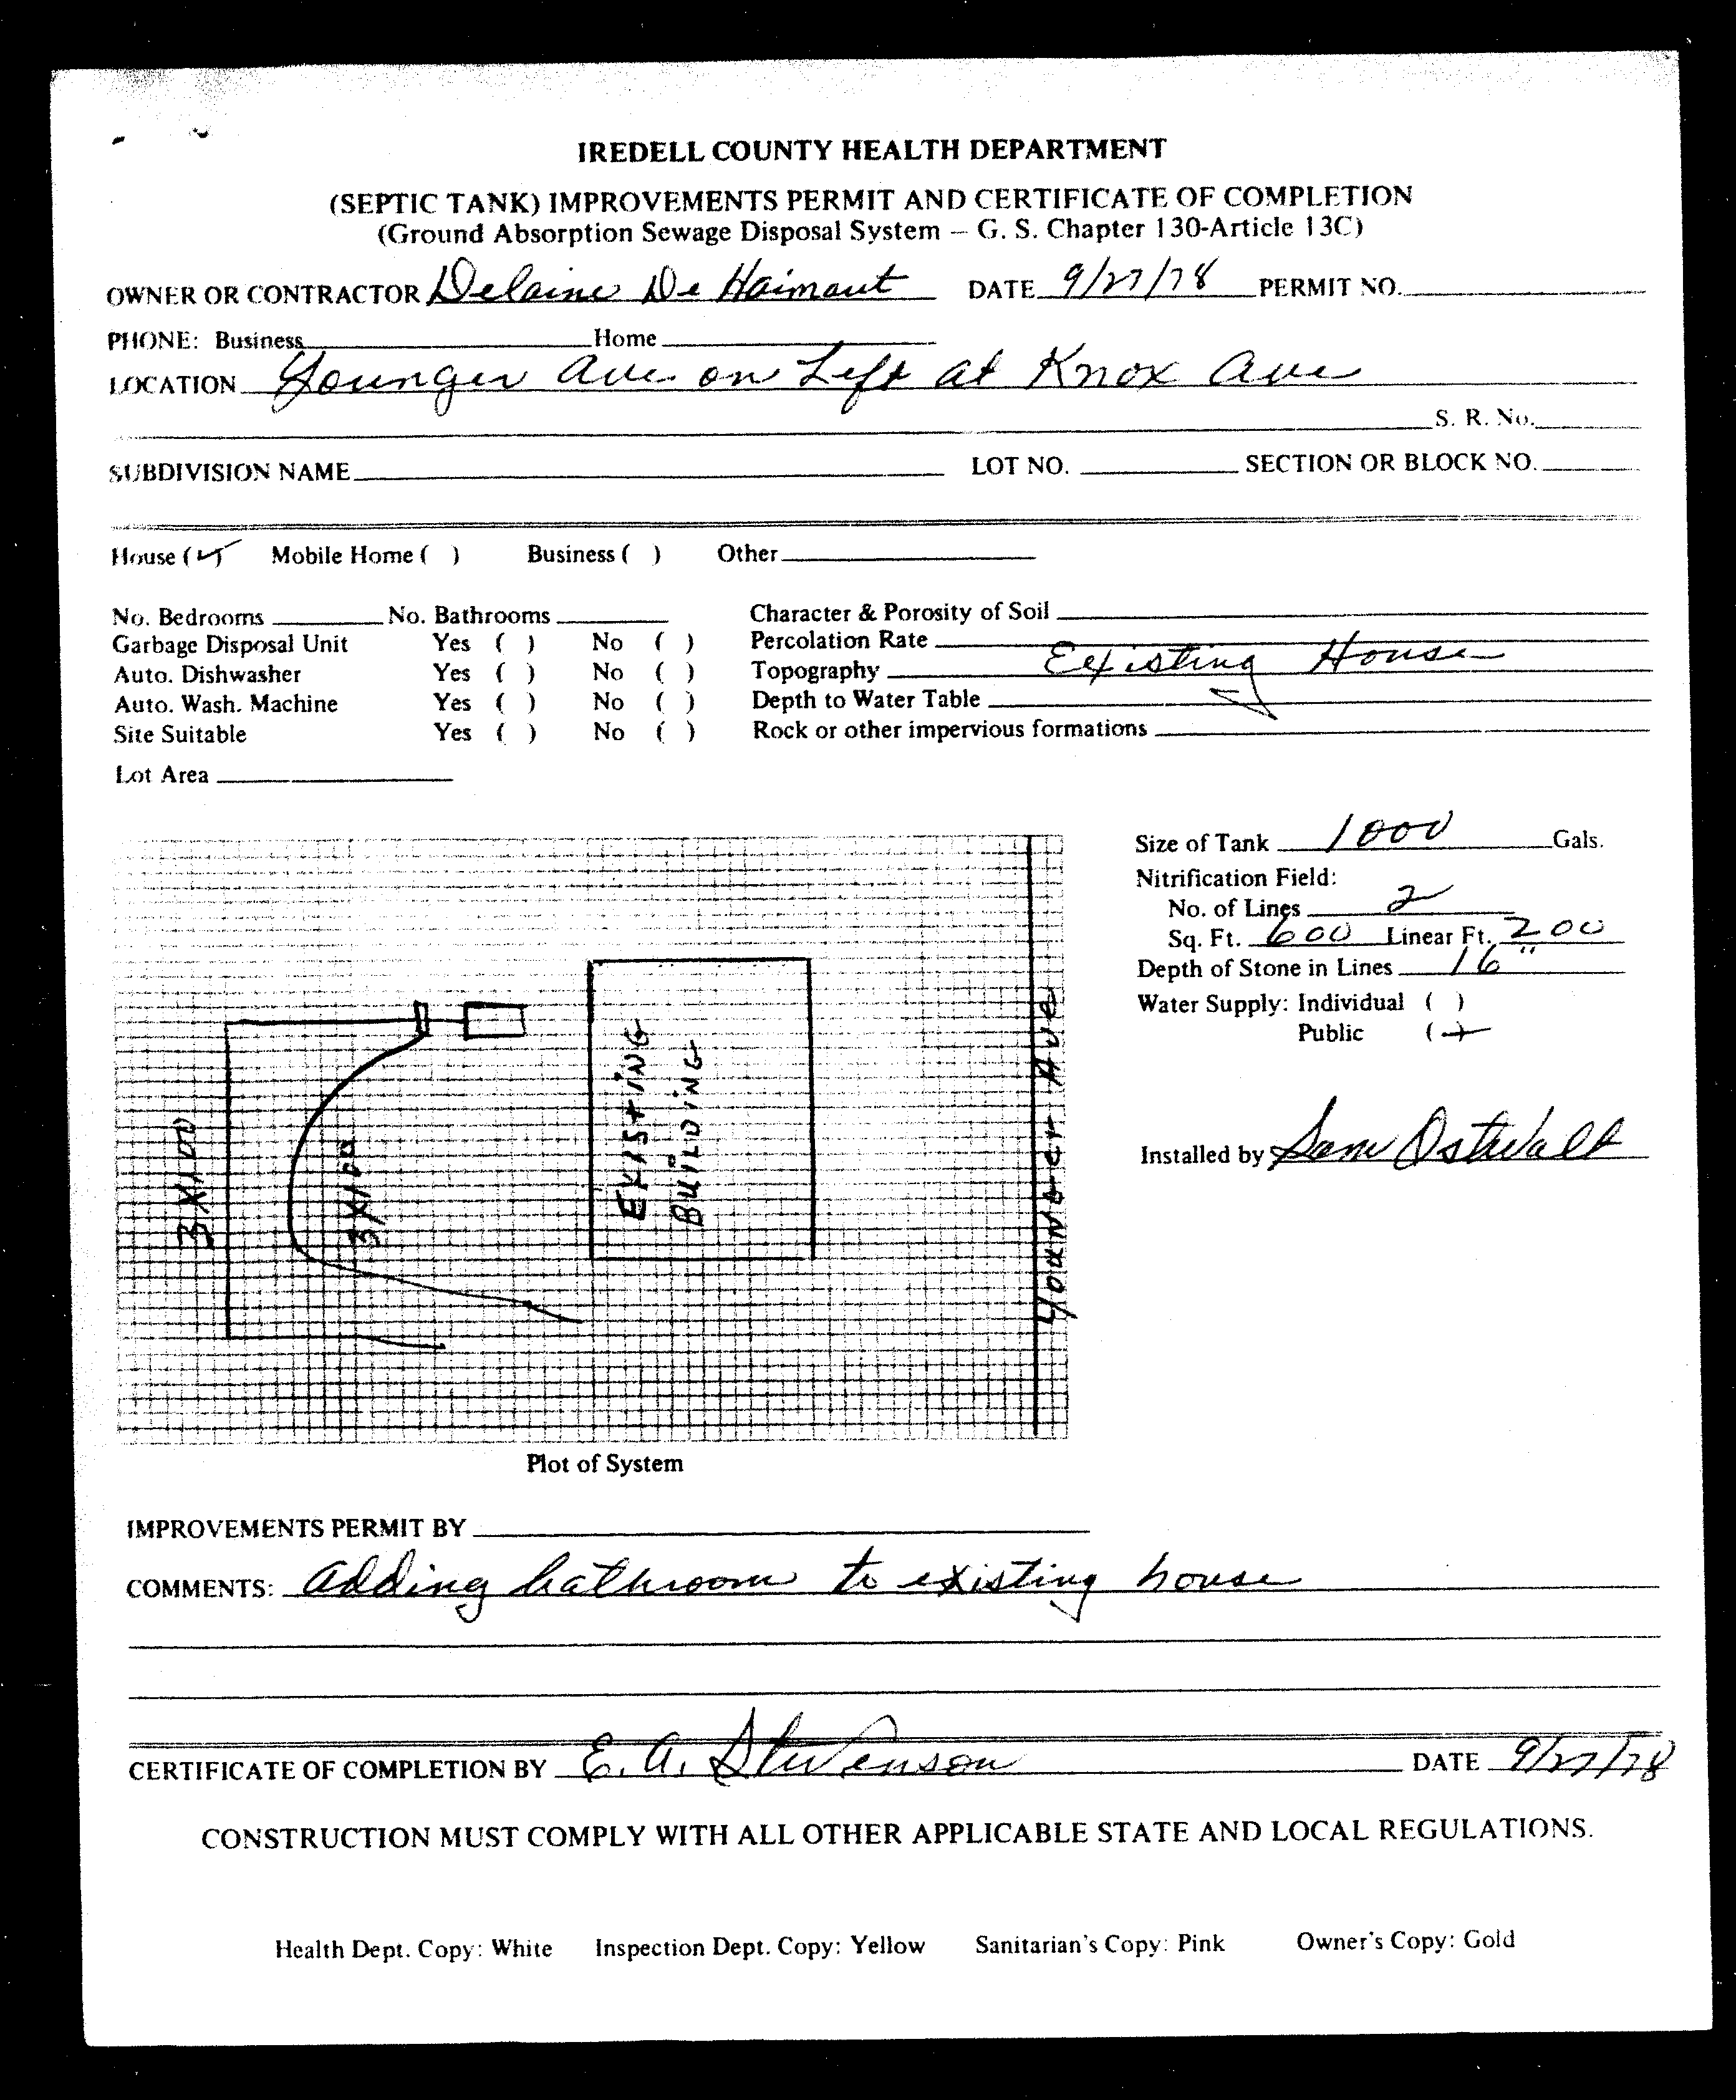 IREDELL COUNTY HEALTH DEPARTMENT
(SEPTIC TANK) IMPROVEMENTS PERMIT AND CERTIFICATE OF COMPLETION
(Ground Absorption Sewage Disposal System – G. S. Chapter 130-Article 13C)
OWNER OR CONTRACTOR Delaine De Haimaut DATE 9/27/78 PERMIT NO.
PHONE: Business Home
LOCATION Younger Ave. on Left at Knox Ave
S. R. No.
SUBDIVISION NAME LOT NO. SECTION OR BLOCK NO.
House (✓) Mobile Home ( ) Business ( ) Other
No. Bedrooms No. Bathrooms Character & Porosity of Soil
Garbage Disposal Unit Yes ( ) No ( ) Percolation Rate
Auto. Dishwasher Yes ( ) No ( ) Topography Existing House
Auto. Wash. Machine Yes ( ) No ( ) Depth to Water Table
Site Suitable Yes ( ) No ( ) Rock or other impervious formations
Lot Area
Size of Tank 1000 Gals.
Nitrification Field:
No. of Lines 2
Sq. Ft. 600 Linear Ft. 200
Depth of Stone in Lines 16"
Water Supply: Individual ( )
Public (✓)
Installed by Sam Ostwalt
3X100
3X100
EXISTING
BUILDING
Younger Ave
Plot of System
IMPROVEMENTS PERMIT BY
COMMENTS: Adding bathroom to existing house
CERTIFICATE OF COMPLETION BY E. A. Stevenson DATE 9/27/78
CONSTRUCTION MUST COMPLY WITH ALL OTHER APPLICABLE STATE AND LOCAL REGULATIONS.
Health Dept. Copy: White Inspection Dept. Copy: Yellow Sanitarian's Copy: Pink Owner's Copy: Gold